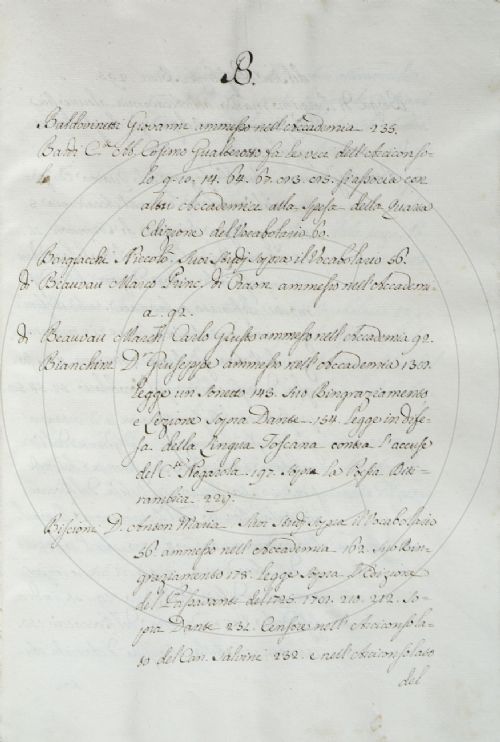 B.
Baldovinetti Giovanni ammesso nell'Accademia 235.
Bardi C.e Ab. Cosimo Gualberotto fa le veci dell'Arciconso-
lo 14. 64. 67. si associa con
altri Accademici alla spesa della Quarta
Edizione del Vocabolario 60.
Bargiacchi Niccolò. Suoi Studj sopra il Vocabolario 56.
di Beauvau Marco Princ. di Craon ammesso nell'Accademi-
a. 92.
di Beauvau March. Carlo Giusto ammesso nell'Accademia 92.
Bianchini D.r Giuseppe ammesso nell'Accademia 130.
legge un Sonetto 143. Suo Ringraziamento
e Lezione sopra Dante. 154. legge in dife-
sa della Lingua Toscana contra l'accuse
del C.e Nogarola. 197. sopra la Poesia Diti-
rambica. 229.
Biscioni D. Anton Maria. Suoi Studj sopra il Vocabolario
56. ammesso nell'Accademia 162. Suo Rin-
graziamento 178. legge sopra l'Edizione
del Passavanti del 1725. 1701. 210. 212. So-
pra Dante 231. Censore nell'Arciconsola-
to del Can. Salvini 232. e nell'Arciconsolato
del